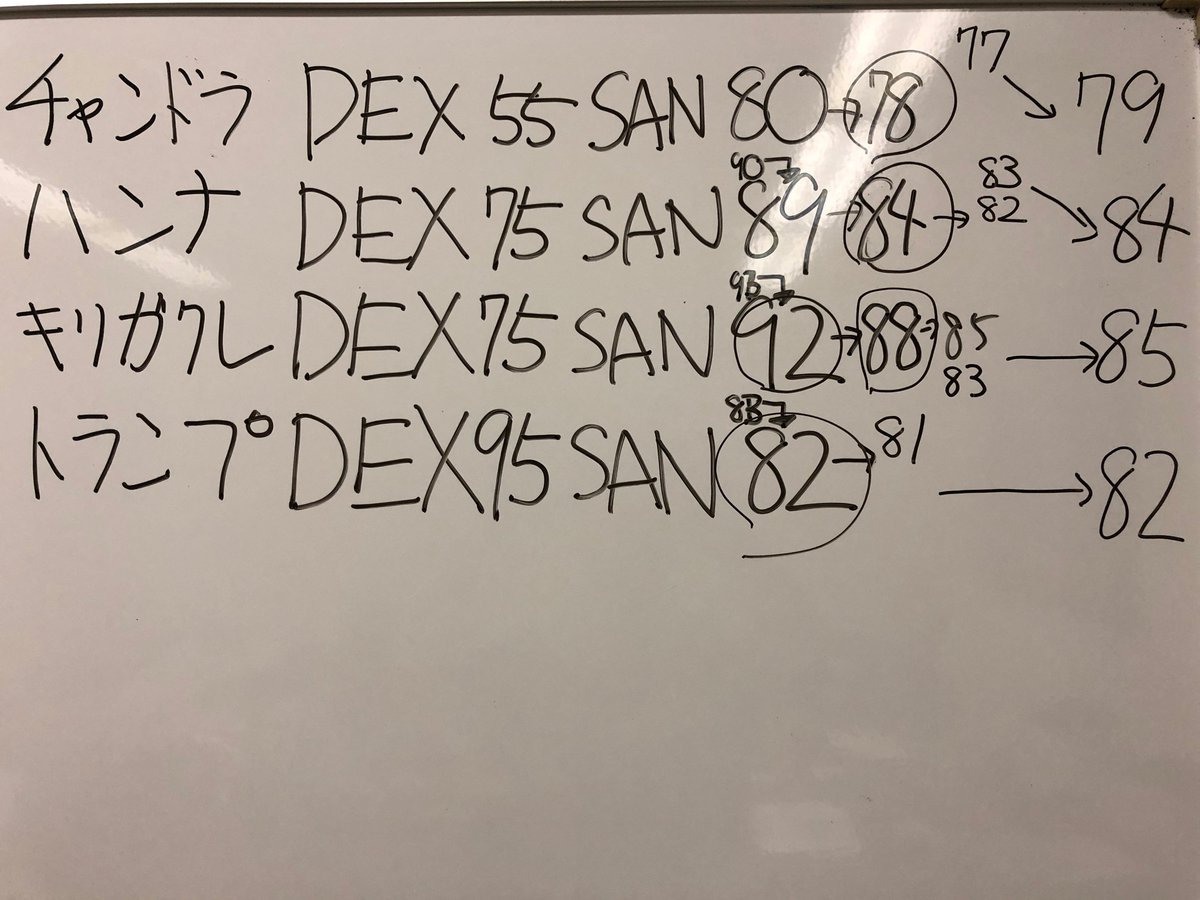 チャンドラ DEX 55 SAN 80→78 77→79
ハンナ DEX 75 SAN 90→89→84→83 82→84
キリガクレ DEX 75 SAN 93→92→88→85 83→85
トランプ DEX 95 SAN 83→82→81→82